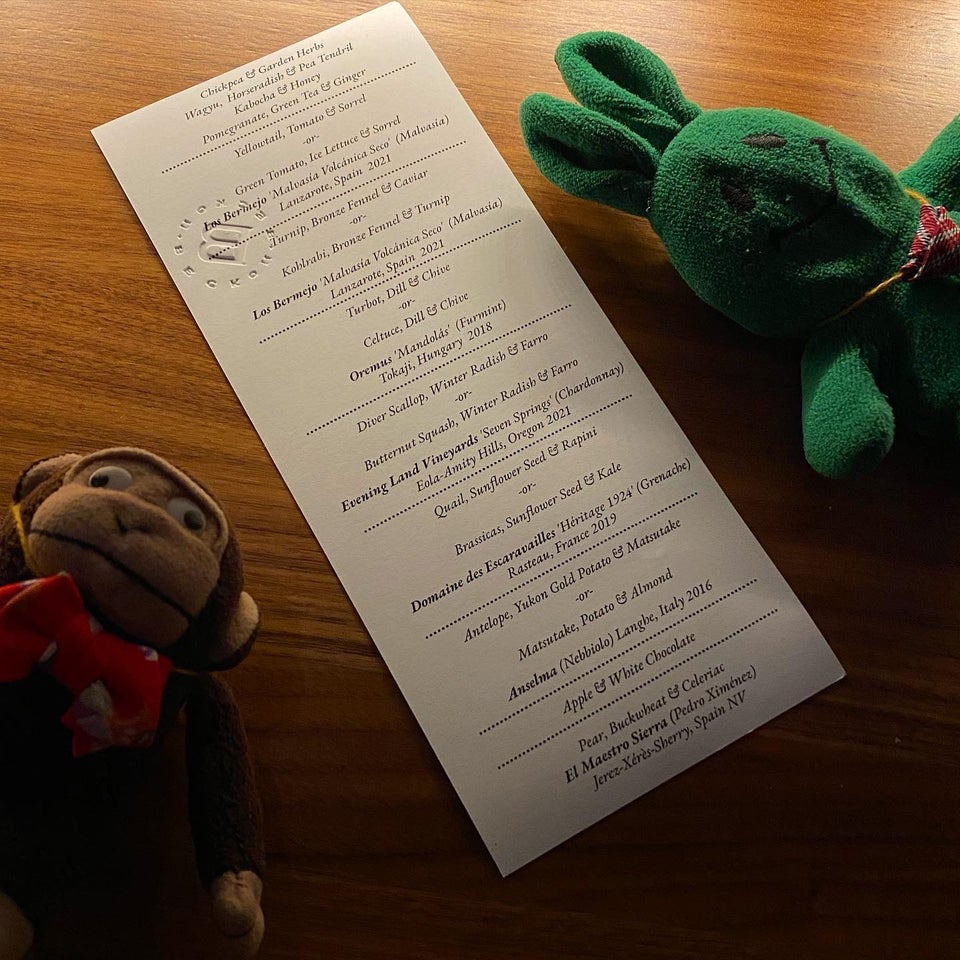 Chickpea & Garden Herbs
Wagyu, Horseradish & Pea Tendril
Kabocha & Honey
Pomegranate, Green Tea & Ginger
Yellowtail, Tomato & Sorrel
-or-
Green Tomato, Ice Lettuce & Sorrel
Los Bermejo 'Malvasia Volcánica Seco' (Malvasia)
Lanzarote, Spain 2021
Turnip, Bronze Fennel & Caviar
-or-
Kohlrabi, Bronze Fennel & Turnip
Los Bermejo 'Malvasía Volcánica Seco' (Malvasía)
Lanzarote, Spain 2021
Turbot, Dill & Chive
-or-
Celtuce, Dill & Chive
Oremus 'Mandolás' (Furmint)
Tokaji, Hungary 2018
Diver Scallop, Winter Radish & Farro
-or-
Butternut Squash, Winter Radish & Farro
Evening Land Vineyards 'Seven Springs' (Chardonnay)
Eola-Amity Hills, Oregon 2021
Quail, Sunflower Seed & Rapini
-or-
Brassicas, Sunflower Seed & Kale
Domaine des Escaravailles 'Héritage 1924' (Grenache)
Rasteau, France 2019
Antelope, Yukon Gold Potato & Matsutake
-or-
Matsutake, Potato & Almond
Anselma (Nebbiolo) Langhe, Italy 2016
Apple & White Chocolate
Pear, Buckwheat & Celeriac
El Maestro Sierra (Pedro Ximénez)
Jerez-Xérès-Sherry, Spain NV